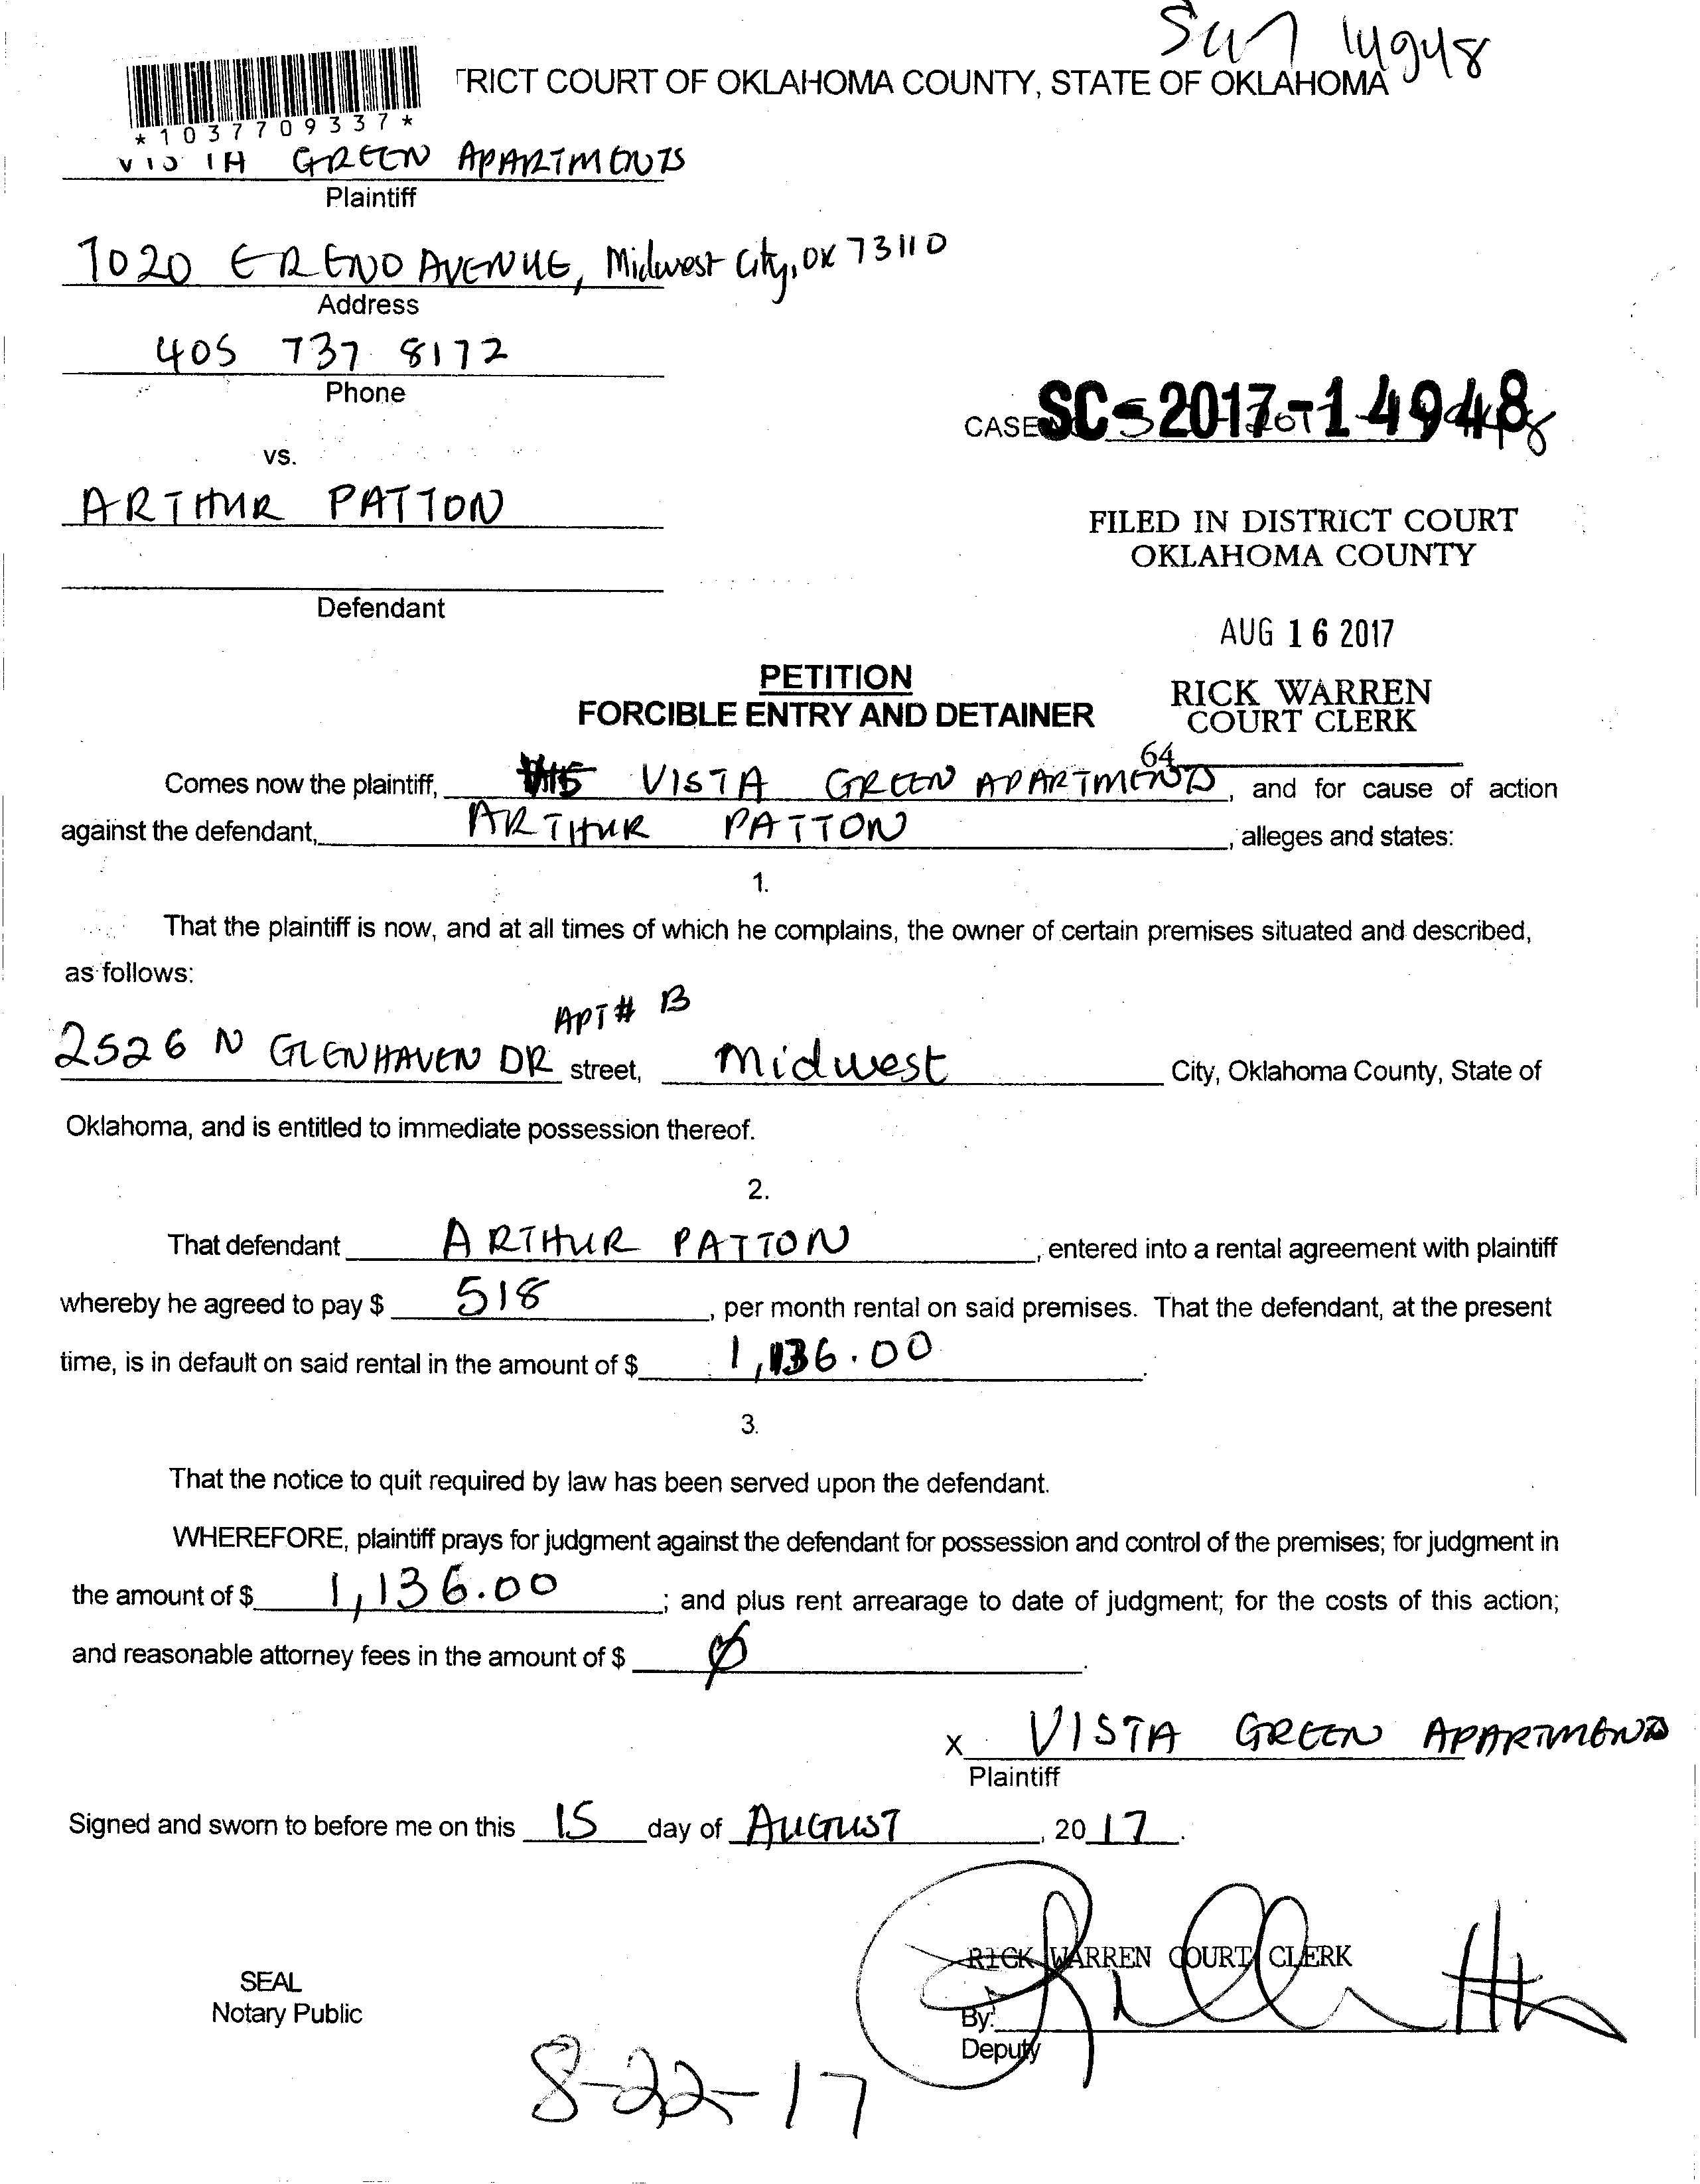 14948
TRICT COURT OF OKLAHOMA COUNTY, STATE OF OKLAHOMA
*1037709337*
VISTA GREEN APARTMENTS
Plaintiff
7020 E RENO AVENUE, Midwest City, OK 73110
Address
405 737 8172
Phone
CASE SC-2017-14948
vs.
ARTHUR PATTON
FILED IN DISTRICT COURT
OKLAHOMA COUNTY
Defendant
AUG 16 2017
PETITION
FORCIBLE ENTRY AND DETAINER
RICK WARREN
COURT CLERK
64
Comes now the plaintiff, VISTA GREEN APARTMENTS, and for cause of action
against the defendant, ARTHUR PATTON, alleges and states:
1.
That the plaintiff is now, and at all times of which he complains, the owner of certain premises situated and described,
as follows:
APT# B
2526 N GLENHAVEN DR street, Midwest City, Oklahoma County, State of
Oklahoma, and is entitled to immediate possession thereof.
2.
That defendant ARTHUR PATTON, entered into a rental agreement with plaintiff
whereby he agreed to pay $ 518, per month rental on said premises. That the defendant, at the present
time, is in default on said rental in the amount of $ 1,136.00.
3.
That the notice to quit required by law has been served upon the defendant.
WHEREFORE, plaintiff prays for judgment against the defendant for possession and control of the premises; for judgment in
the amount of $ 1,136.00; and plus rent arrearage to date of judgment; for the costs of this action;
and reasonable attorney fees in the amount of $ Ø.
X VISTA GREEN APARTMENTS
Plaintiff
Signed and sworn to before me on this 15 day of AUGUST, 2017.
RICK WARREN COURT CLERK
SEAL
Notary Public
By:
Deputy
8-22-17